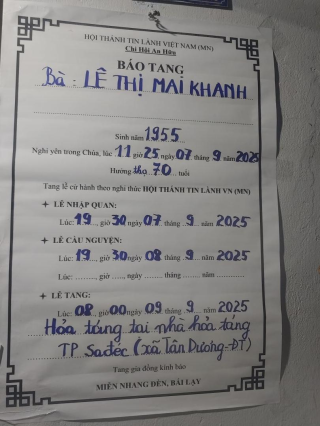 HỘI THÁNH TIN LÀNH VIỆT NAM (MN)
Chi Hội An Hữu
BÁO TANG
Bà : LÊ THỊ MAI KHANH
Sinh năm 1955
Nghỉ yên trong Chúa, lúc 11 giờ 25 ngày 07 tháng 9 năm 2025
Hưởng thọ 70 tuổi
Tang lễ cử hành theo nghi thức HỘI THÁNH TIN LÀNH VN (MN)
LỄ NHẬP QUAN:
Lúc: 19 giờ 30 ngày 07 tháng 9 năm 2025
LỄ CẦU NGUYỆN:
Lúc: 19 giờ 30 ngày 08 tháng 9 năm 2025
Lúc: ........, giờ ....., ngày ......... tháng ........ năm ..........
LỄ TANG:
Lúc: 08 giờ 00 ngày 09 tháng 9 năm 2025
Hỏa táng tại nhà hỏa táng
TP Sađéc (xã Tân Dương-ĐT)
Tang gia đồng kính báo
MIỄN NHANG ĐÈN, BÁI LẠY